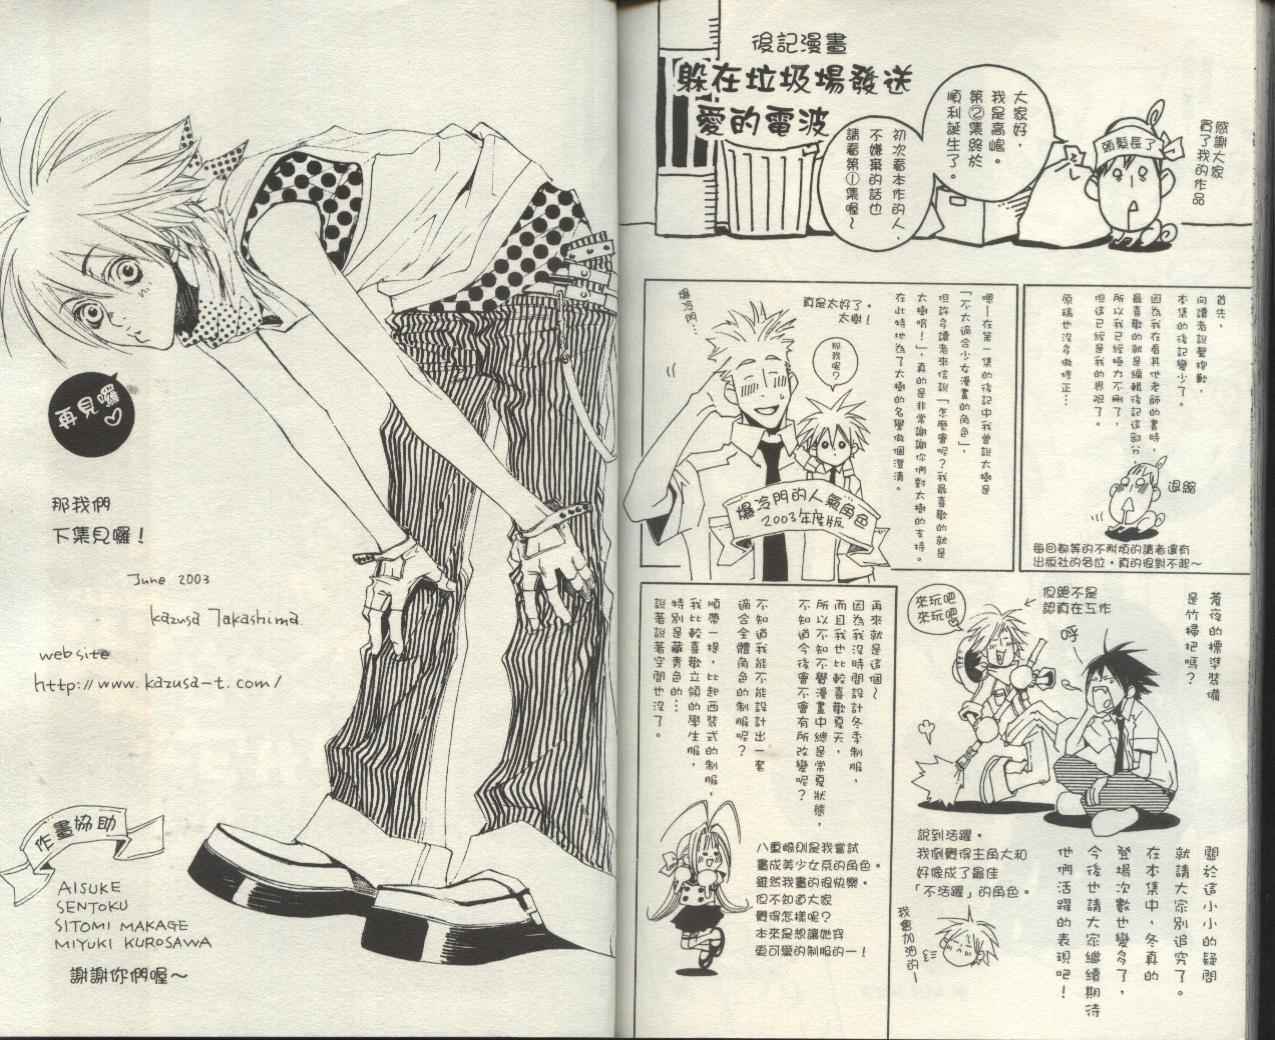 後記漫畫
躲在垃圾場發送
愛的電波
感謝大家
買了我的作品
頭髮長了
大家好，
我是高嶋。
第②集終於
順利誕生了。
初次看本作的人，
不嫌棄的話也
請看第①集喔～
首先，
向讀者說聲抱歉，
本集的後記變少了。
因為我在看其他老師的書時，
最喜歡的就是編輯後記這部分，
所以我已經極力不刪了，
但這已經是我的界限了。
原稿也沒多做修正…
退縮
每回都等的不耐煩的讀者還有
出版社的各位，真的很對不起～
嗯—在第一集的後記中我曾說大樹是
「不太適合少女漫畫的角色」，
但許多讀者來信說「怎麼會呢？我最喜歡的就是
大樹喲！」，真的是非常謝謝你們對大樹的支持。
在此特地為了大樹的名譽做個澄清。
真是太好了，
太樹！
那我呢？
爆冷門…
爆冷門的人氣角色
2003年度版
蒼夜的標準裝備
是竹掃把嗎？
但絕不是
認真在工作
來玩吧
來玩吧
呼
關於這小小的疑問
就請大家別追究了。
在本集中，冬真的
登場次數也變多了，
今後也請大家繼續期待
他們活躍的表現吧！
說到活躍，
我倒覺得主角大和
好像成了最佳
「不活躍」的角色。
我會加油的—
再來就是這個～
因為我沒時間設計冬季制服，
而且我也比較喜歡夏天，
所以不知不覺漫畫中總是常夏狀態，
不知道今後會不會有所改變呢？
不知道我能不能設計出一套
適合全體角色的制服呢？
順帶一提，比起西裝式的制服，
我比較喜歡立領的學生服，
特別是藏青色的…
說著說著空間也沒了。
八重櫻則是我嘗試
畫成美少女系的角色。
雖然我畫的很快樂，
但不知道大家
覺得怎樣呢？
本來是想讓她穿
更可愛的制服的—！
再見囉♡
那我們
下集見囉！
June 2003
kazusa Takashima
web site
http://www.kazusa-t.com/
作畫協助
AISUKE
SENTOKU
SITOMI MAKAGE
MIYUKI KUROSAWA
謝謝你們喔～